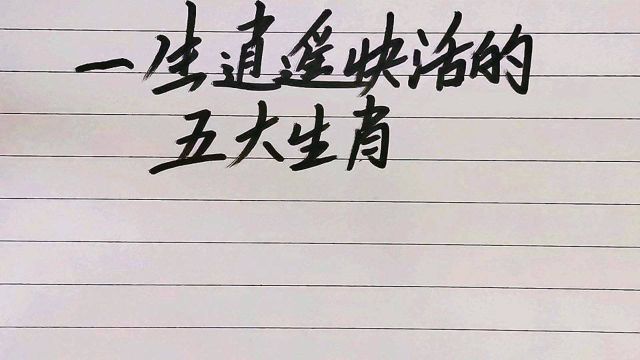 一生逍遥快活的
五大生肖